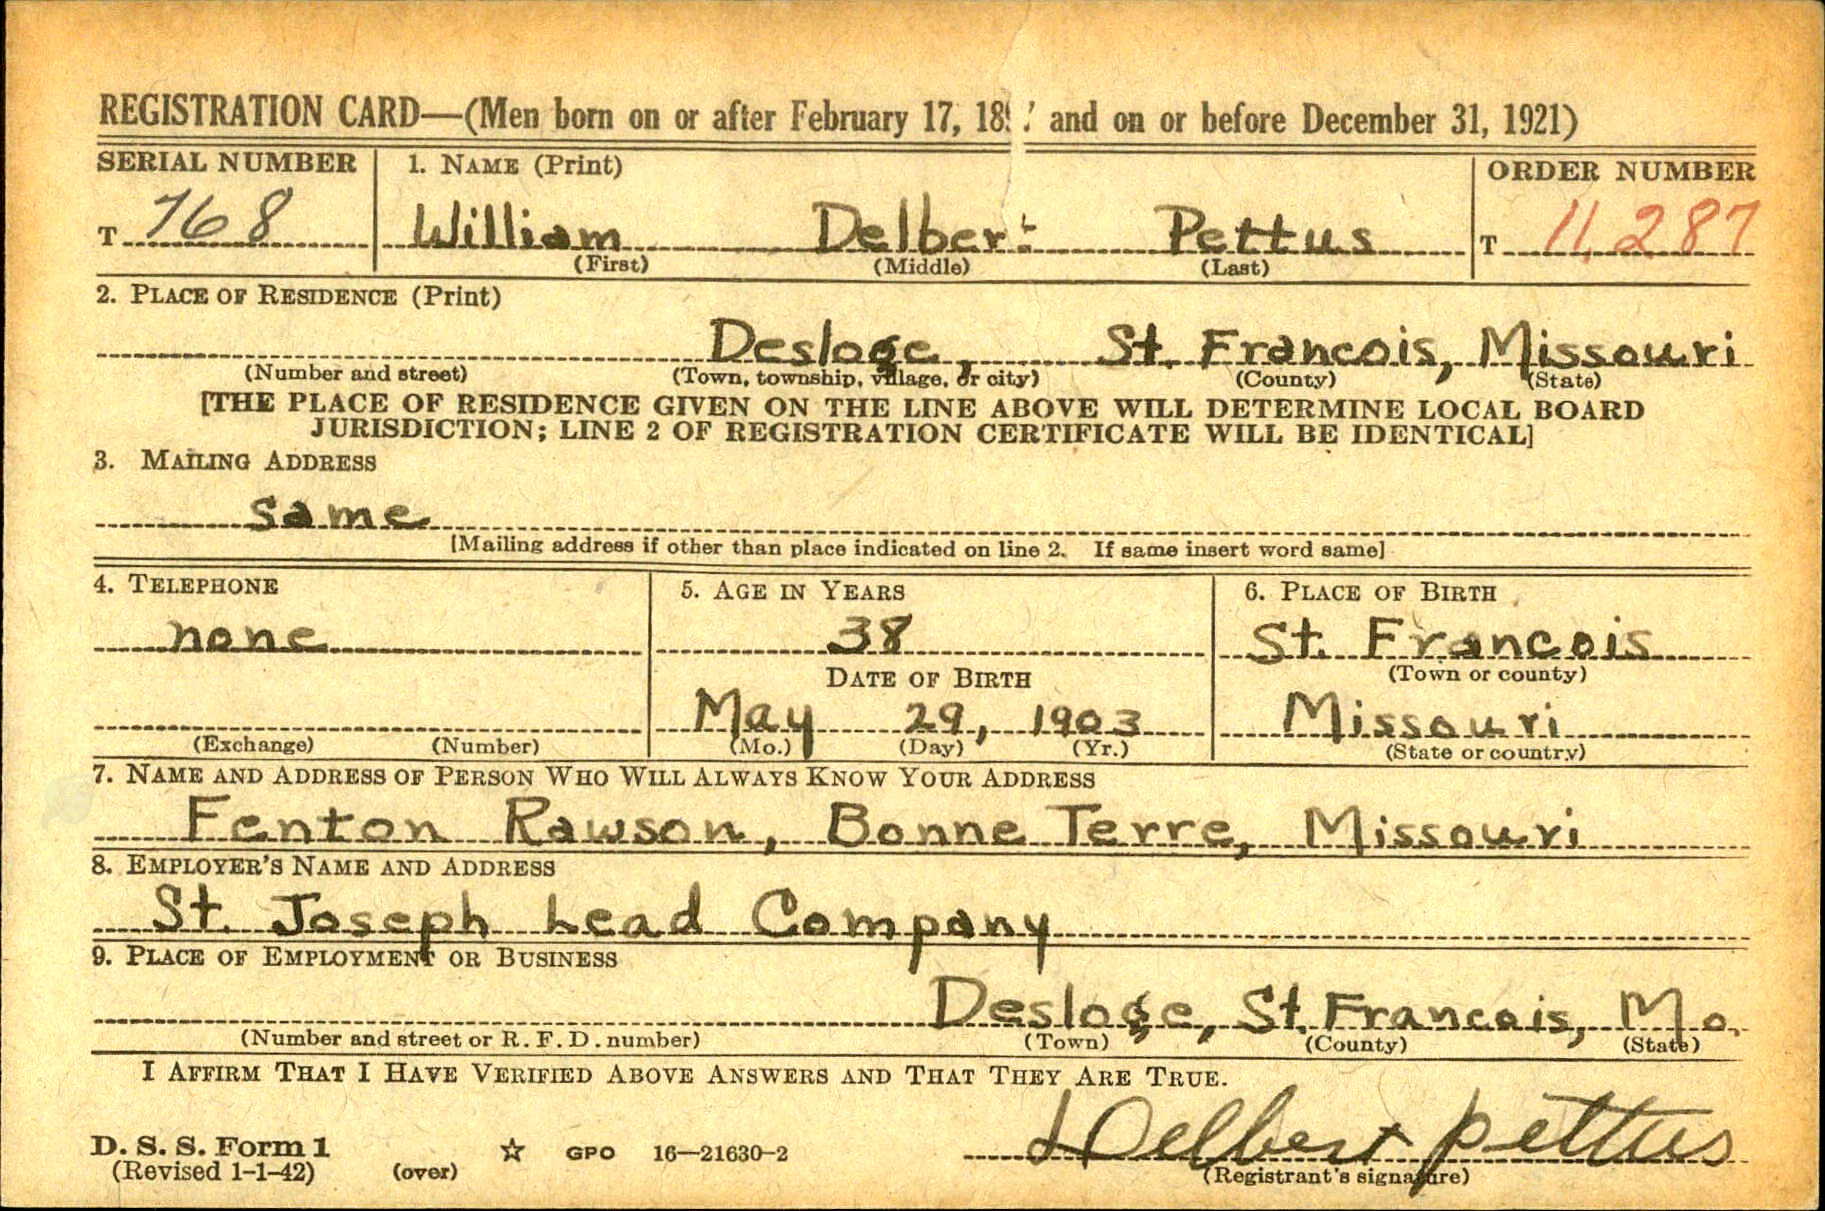 REGISTRATION CARD—(Men born on or after February 17, 189 and on or before December 31, 1921)
SERIAL NUMBER 1. NAME (Print) ORDER NUMBER
T 768 William Delbert Pettus T 11,287
(First) (Middle) (Last)
2. PLACE OF RESIDENCE (Print)
Desloge, St. Francois, Missouri
(Number and street) (Town, township, village, or city) (County) (State)
[THE PLACE OF RESIDENCE GIVEN ON THE LINE ABOVE WILL DETERMINE LOCAL BOARD
JURISDICTION; LINE 2 OF REGISTRATION CERTIFICATE WILL BE IDENTICAL]
3. MAILING ADDRESS
same
[Mailing address if other than place indicated on line 2. If same insert word same]
4. TELEPHONE 5. AGE IN YEARS 6. PLACE OF BIRTH
none 38 St. Francois
DATE OF BIRTH (Town or county)
May 29, 1903 Missouri
(Exchange) (Number) (Mo.) (Day) (Yr.) (State or country)
7. NAME AND ADDRESS OF PERSON WHO WILL ALWAYS KNOW YOUR ADDRESS
Fenton Rawson, Bonne Terre, Missouri
8. EMPLOYER'S NAME AND ADDRESS
St. Joseph Lead Company
9. PLACE OF EMPLOYMENT OR BUSINESS
Desloge, St. Francois, Mo.
(Number and street or R. F. D. number) (Town) (County) (State)
I AFFIRM THAT I HAVE VERIFIED ABOVE ANSWERS AND THAT THEY ARE TRUE.
D. S. S. Form 1 ☆ GPO 16—21630-2 Delbert Pettus
(Revised 1-1-42) (over) (Registrant's signature)